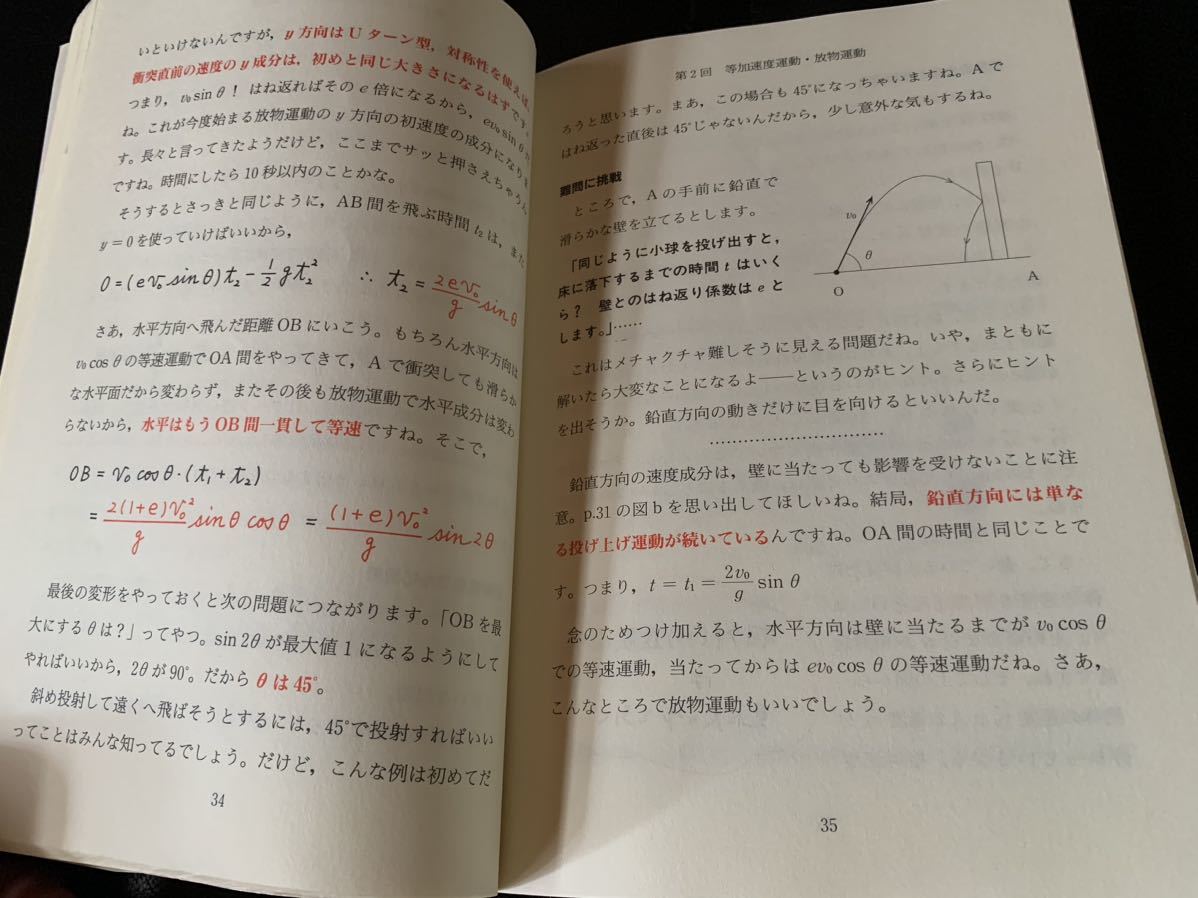 いといけないんですが，y方向はUターン型，対称性を使えば，
衝突直前の速度のy成分は，初めと同じ大きさになるはずです。
つまり，v₀sinθ！ はね返ればその e 倍になるから，ev₀sinθ
ね。これが今度始まる放物運動の y 方向の初速度の成分になり
す。長々と言ってきたようだけど，ここまでサッと押さえちゃうん
ですね。時間にしたら10秒以内のことかな。
そうするとさっきと同じように，AB間を飛ぶ時間 t₂ は，また
y＝0を使っていけばいいから，
0＝(ev₀ sinθ)t₂－1/2 gt₂² ∴ t₂＝2ev₀/g sinθ
さあ，水平方向へ飛んだ距離OBにいこう。もちろん水平方向は
v₀cosθの等速運動でOA間をやってきて，Aで衝突しても滑らか
な水平面だから変わらず，またその後も放物運動で水平成分は変わ
らないから，水平はもうOB間一貫して等速ですね。そこで，
OB＝v₀cosθ·(t₁＋t₂)
＝2(1+e)v₀²/g sinθ cosθ ＝ (1+e)v₀²/g sin2θ
最後の変形をやっておくと次の問題につながります。「OBを最
大にするθは？」ってやつ。sin2θが最大値1になるようにして
やればいいから，2θが90°。だからθは45°。
斜め投射して遠くへ飛ばそうとするには，45°で投射すればいい
ってことはみんな知ってるでしょう。だけど，こんな例は初めてだ
34
第2回 等加速度運動・放物運動
ろうと思います。まあ，この場合も45°になっちゃいますね。Aで
はね返った直後は45°じゃないんだから，少し意外な気もするね。
難問に挑戦
ところで，Aの手前に鉛直で
滑らかな壁を立てるとします。
「同じように小球を投げ出すと，
床に落下するまでの時間 t はいく
ら？ 壁とのはね返り係数は e と
します。」……
v₀
θ
O
A
これはメチャクチャ難しそうに見える問題だね。いや，まともに
解いたら大変なことになるよ──というのがヒント。さらにヒント
を出そうか。鉛直方向の動きだけに目を向けるといいんだ。
…………………………
鉛直方向の速度成分は，壁に当たっても影響を受けないことに注
意。p.31の図bを思い出してほしいね。結局，鉛直方向には単な
る投げ上げ運動が続いているんですね。OA間の時間と同じことで
す。つまり，t＝t₁＝2v₀/g sinθ
念のためつけ加えると，水平方向は壁に当たるまでが v₀cosθ
での等速運動，当たってからは ev₀cosθ の等速運動だね。さあ，
こんなところで放物運動もいいでしょう。
35